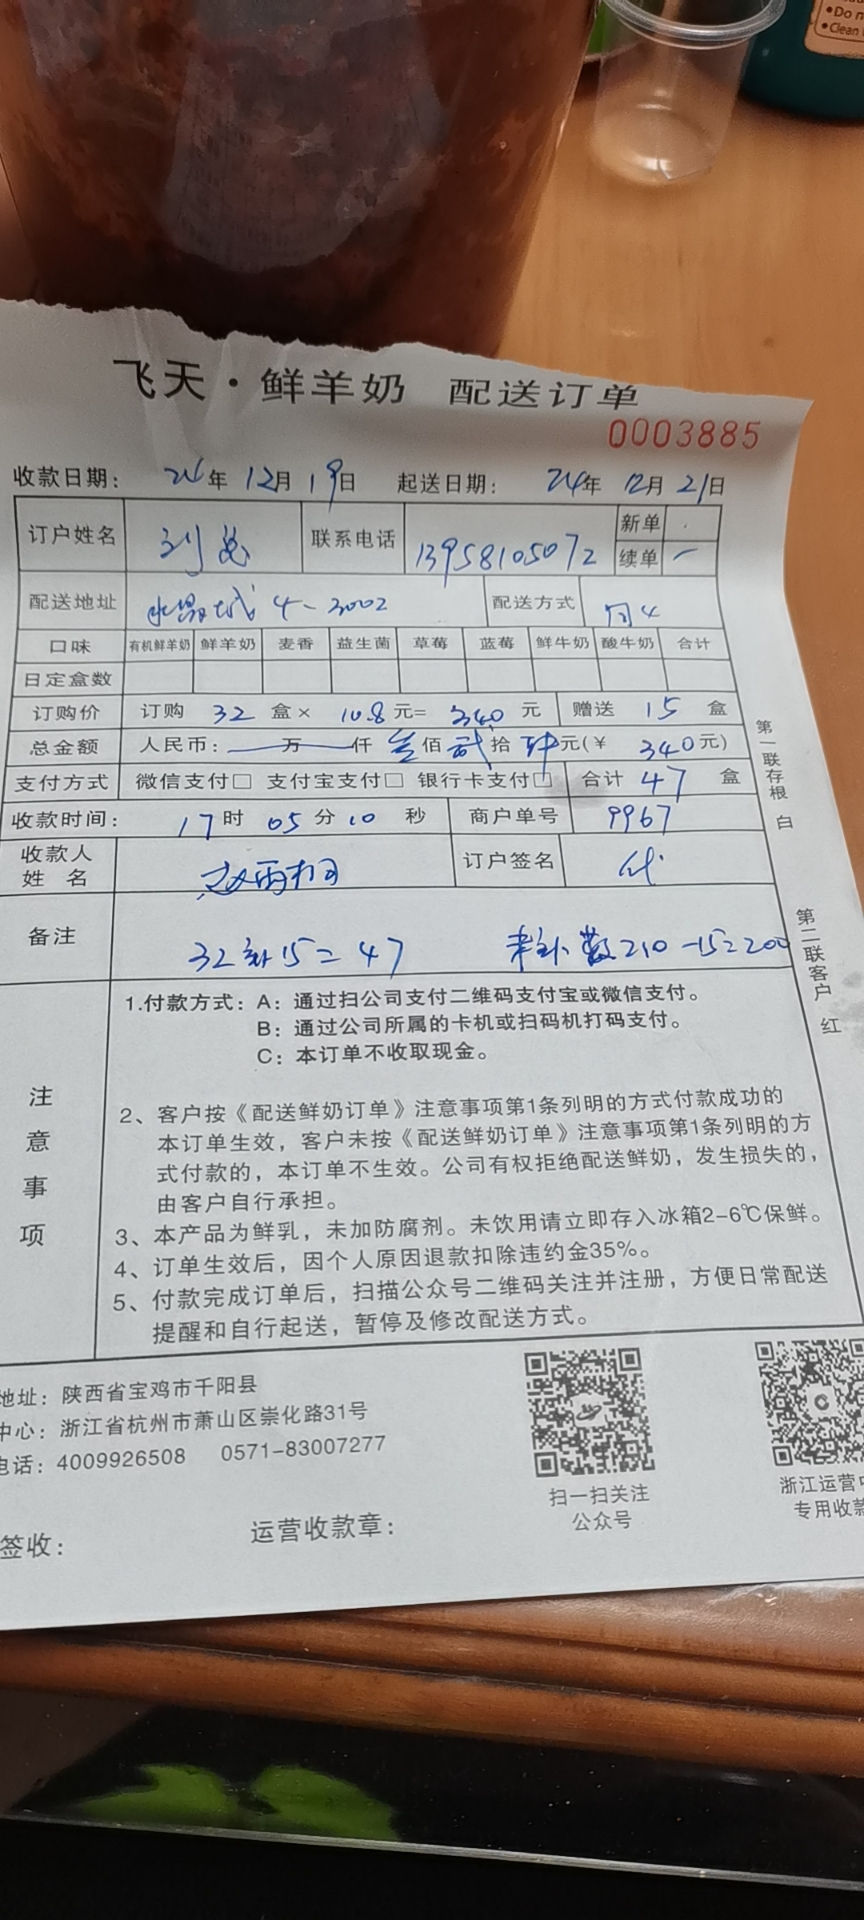 Do n
Clean
飞天·鲜羊奶 配送订单
0003885
收款日期： 24年 12月 19日 起送日期： 24年 12月 21日
订户姓名 刘总 联系电话 13958105072 新单
续单
配送地址 4-3002 配送方式
口味 有机鲜羊奶 鲜羊奶 麦香 益生菌 草莓 蓝莓 鲜牛奶 酸牛奶 合计
日定盒数
订购价 订购 32 盒× 10.8 元= 340 元 赠送 15 盒
总金额 人民币： 万 仟 佰 拾 元(￥ 340元)
支付方式 微信支付□ 支付宝支付□ 银行卡支付□ 合计 47 盒
收款时间： 17时 05分 10 秒 商户单号 9967
收款人
姓 名 订户签名
备注 32 15=47 210-15=200
第一联存根 白
第二联客户 红
注意事项
1.付款方式：A：通过扫公司支付二维码支付宝或微信支付。
B：通过公司所属的卡机或扫码机打码支付。
C：本订单不收取现金。
2、客户按《配送鲜奶订单》注意事项第1条列明的方式付款成功的
本订单生效，客户未按《配送鲜奶订单》注意事项第1条列明的方
式付款的，本订单不生效。公司有权拒绝配送鲜奶，发生损失的，
由客户自行承担。
3、本产品为鲜乳，未加防腐剂。未饮用请立即存入冰箱2-6℃保鲜。
4、订单生效后，因个人原因退款扣除违约金35%。
5、付款完成订单后，扫描公众号二维码关注并注册，方便日常配送
提醒和自行起送，暂停及修改配送方式。
地址：陕西省宝鸡市千阳县
中心：浙江省杭州市萧山区崇化路31号
电话：4009926508 0571-83007277
扫一扫关注
公众号
浙江运营中
专用收款
签收： 运营收款章：